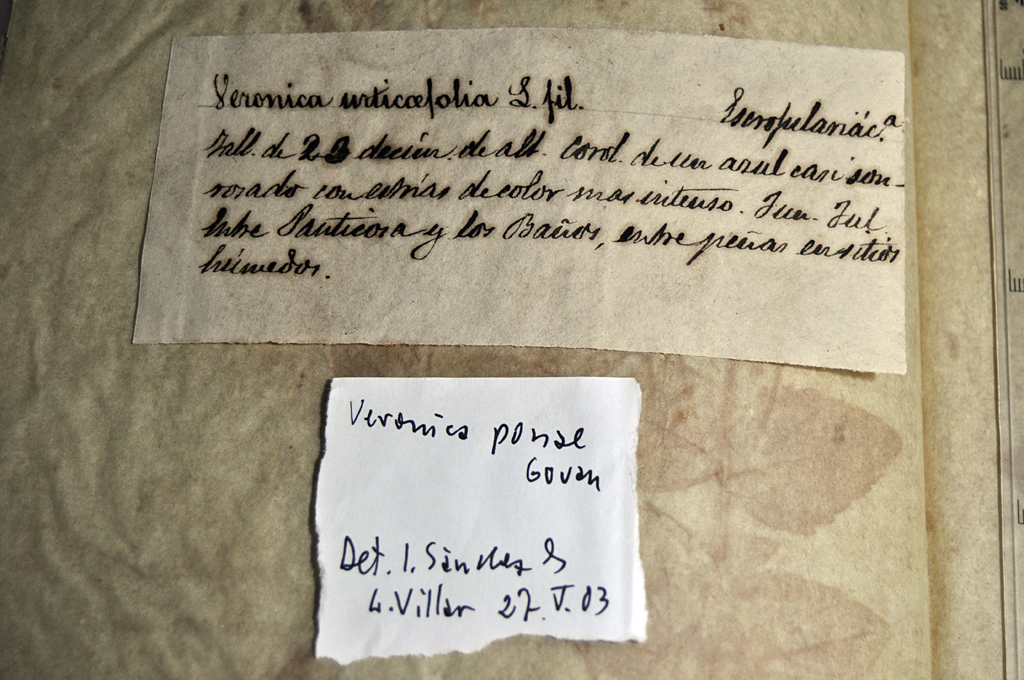 Veronica urticæfolia L. fil.
Escrofulariác.ª
Tall. de 23 decím. de alt. Corol. de un azul casi son-
rosado con estrías de color mas intenso. Jun. Jul.
Entre Panticosa y los Baños, entre peñas en sitios
húmedos.
Veronica ponae
Gouan
Det. I. Sánchez &
L. Villar 27.V.03